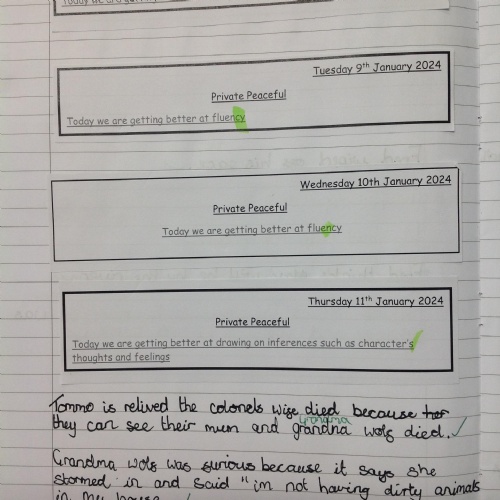 Today we are getting
Tuesday 9th January 2024
Private Peaceful
Today we are getting better at fluency
Wednesday 10th January 2024
Private Peaceful
Today we are getting better at fluency
Thursday 11th January 2024
Private Peaceful
Today we are getting better at drawing on inferences such as character's
thoughts and feelings
Tommo is relived the colonels wise died because her
grandma
they can see their mum and grandna wolg died.
Grandma wolg was surious because it says she
stormed in and said "im not having dirty animals
in my house